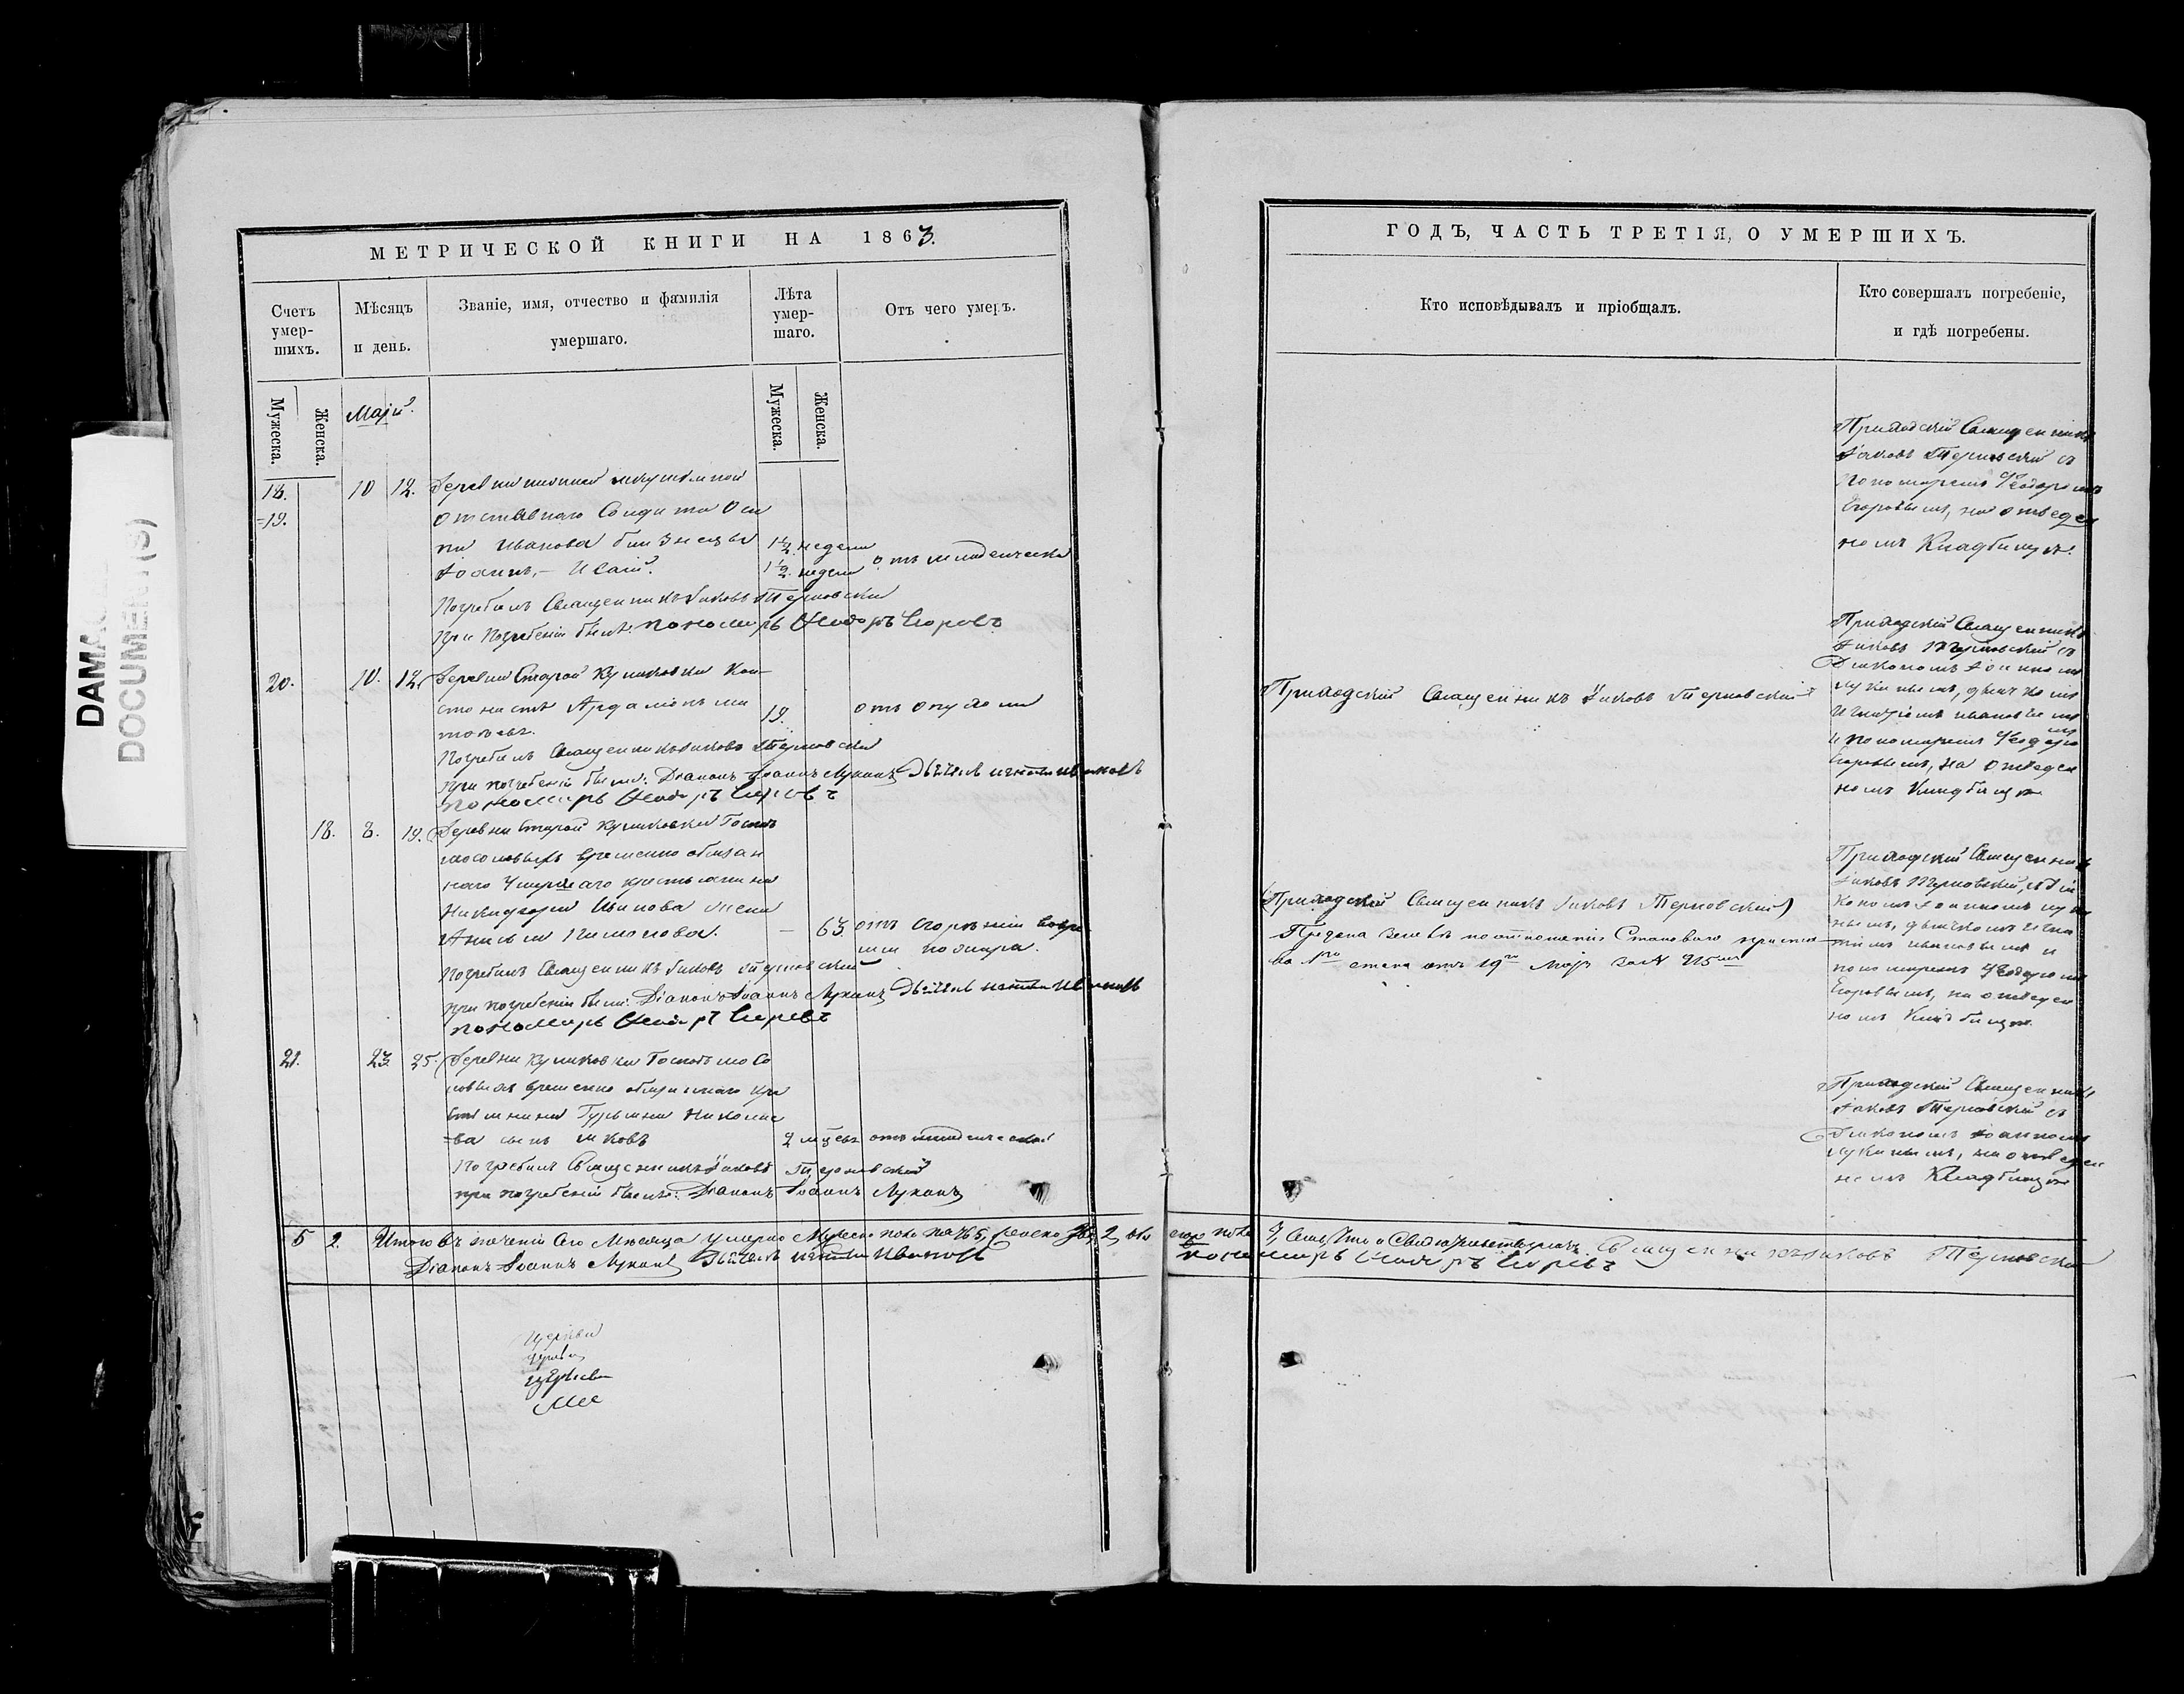 DAMA
DOCUMENT (S)
МЕТРИЧЕСКОЙ КНИГИ НА 1863.
Счетъ
умер-
шихъ.
Мѣсяцъ
и день.
Званіе, имя, отчество и фамилія
умершаго.
Лѣта
умер-
шаго.
Отъ чего умеръ.
Мужеска.
Женска.
Маій.
Мужеска.
Женска.
18. 10 12. Деревни
=19. отставнаго Солдата Оси
па Иванова близнецы 1½ недели
Іоаннъ, – Исаій. 1½ недели отъ младенческа
Погребалъ Священникъ Іаковъ Терновскій
При Погребеніи былъ: пономарь Ѳеодоръ Егоровъ
20. 10. 12. Деревни Старой Куликовки Кон-
стонистъ Ардаліонъ 19. отъ опухоли
Погребалъ Священникъ Іаковъ Терновскій
при погребеніи были: Діаконъ Іоаннъ Лукинъ Дьячекъ Игнатій Ивановъ
пономарь Ѳеодоръ Егоровъ
18. 8. 19. Деревни Старой Куликовки Госпожъ
Мосоловыхъ временно обязан
наго умершаго крестьянина
Никифора жена
Анисья – 63. отъ сгоренія вовре
мя пожара.
Погребалъ Священникъ Іаковъ Терновскій
при погребеніи были: Діаконъ Іоаннъ Лукинъ Дьячекъ Игнатій Ивановъ
пономарь Ѳеодоръ Егоровъ
21. 23. 25. Деревни Куликовки Госпожъ Мосо
ловыхъ временно обязаннаго кре
стьянина Николае
=ва сынъ Іаковъ 2 мѣсяц отъ младенческой
Погребалъ Священникъ Іаковъ Терновскій
при погребеніи былъ: Діаконъ Іоаннъ Лукинъ
5 2. Итого въ теченіи Сего Мѣсяца умерло Мужеска пола 5, женска 2,
Діаконъ Іоаннъ Лукинъ Дьячекъ Игнатій Ивановъ
Церкви
ГОДЪ, ЧАСТЬ ТРЕТІЯ, О УМЕРШИХЪ.
Кто исповѣдывалъ и пріобщалъ.
Кто совершалъ погребеніе,
и гдѣ погребены.
Приходскій Священникъ
Іаковъ Терновскій съ
Пономаремъ Ѳеодоромъ
Егоровымъ, на отведен
номъ Кладбищѣ.
Приходскій Священникъ Іаковъ Терновскій
Приходскій Священникъ
Іаковъ Терновскій съ
Діакономъ Іоанномъ
Лукинымъ, дьячкомъ
Игнатіемъ Ивановымъ
и пономаремъ Ѳеодоро
мъ
Егоровымъ, на отведен
номъ Кладбищѣ
Приходскій Священникъ Іаковъ Терновскій
Предана землѣ по отношенію Становаго пристава
1го стана отъ 19го Маія за № 215мъ
Приходскій Священникъ
Іаковъ Терновскій, съ Діа
кономъ Іоанномъ Луки
нымъ, дьячкомъ Игна
тіемъ Ивановымъ и
пономаремъ Ѳеодоромъ
Егоровымъ, на отведен
номъ Кладбищѣ.
Приходскій Священникъ
Іаковъ Терновскій съ
Діакономъ Іоанномъ
Лукинымъ, на отведен
номъ Кладбищѣ
пола 7, Священникъ Іаковъ Терновскій
пономарь Ѳеодоръ Егоровъ